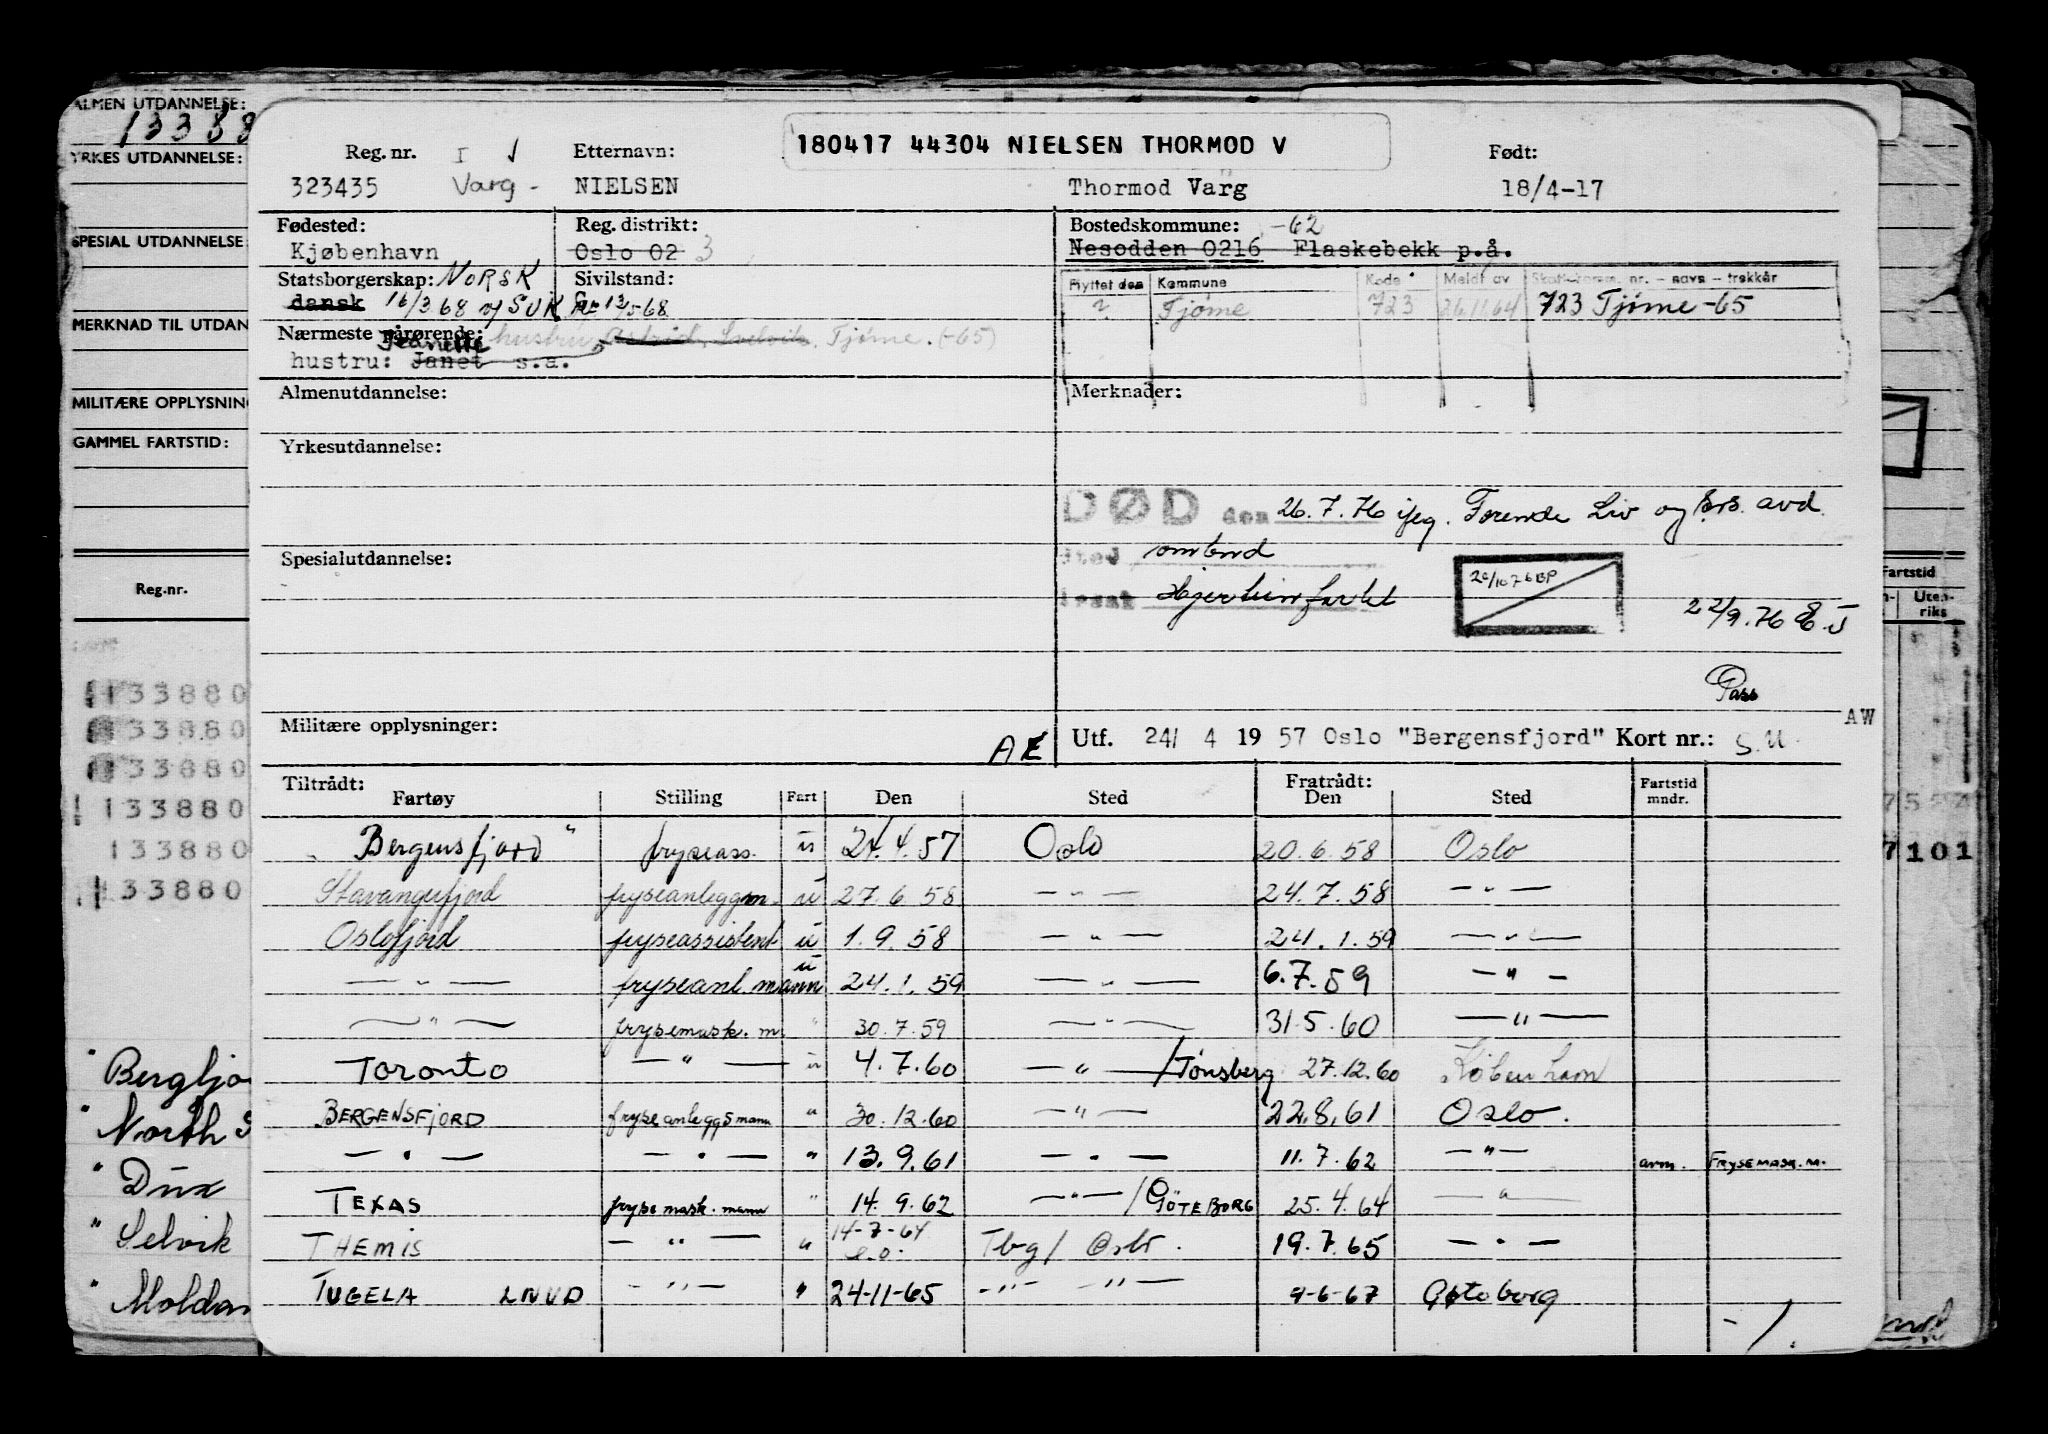 ALMEN UTDANNELSE:
YRKES UTDANNELSE:
SPESIAL UTDANNELSE
MERKNAD TIL UTDAN
MILITÆRE OPPLYSNIN
GAMMEL FARTSTID:
Reg.nr.
133880
33880
33880
133880
133880
133880
" Bergljo
" North S
" Dux
" Selvik
" Moldan
180417 44304 NIELSEN THORMOD V
Reg. nr. I Etternavn: Født:
323435 Varg - NIELSEN Thormod Varg 18/4-17
Fødested: Reg. distrikt: Bostedskommune: -62
Kjøbenhavn Oslo 02 3 Nesodden 0216 Flaskebekk p.å.
Statsborgerskap: NORSK Sivilstand:
dansk 16/3.68 SUK 13/5-68
Flyttet den Kommune Kode Meldt av Skatt.komm. nr. - navn - trekkår
? Tjøme 723 26.11.64 723 Tjøme -65
Nærmeste pårørende: hustru, Astrid, Tjøme. (-65)
Jeanette
hustru: Janet s.a.
Almenutdannelse: Merknader:
Yrkesutdannelse:
DØD den 26.7.76 Liv og avd.
Spesialutdannelse: sted ombord
årsak
20/10 76 BP
22/9.76
Pass
Militære opplysninger: AW
AE Utf. 24/ 4 19 57 Oslo "Bergensfjord" Kort nr.: S.U.
Tiltrådt: Fratrådt: Fartstid
Fartøy Stilling Fart Den Sted Den Sted mndr.
Bergensfjord" fryseass. u 24.4.57 Oslo 20.6.58 Oslo
Stavangerfjord fryseanleggm. u 27.6.58 — " — 24.7.58 — " —
Oslofjord fryseassistent u 1.9.58 — " — 24.1.59 — " —
— " — fryseanl.mann u 24.1.59 — " — 6.7.59 — " —
— " — frysemask.m. " 30.7.59 — " — 31.5.60 — " —
Toronto — " — u 4.7.60 — " — /Tønsberg 27.12.60 København
BERGENSFJORD fryseanleggsmann " 30.12.60 — " — 22.8.61 Oslo.
— " — — " — " 13.9.61 — " — 11.7.62 — " — avm. FRYSEMASK.M.
TEXAS frysemask.mann " 14.9.62 — " — / GÖTEBORG 25.4.64 — " —
THEMIS — " — " 14-7-64 Tbg / Oslo. 19.7.65 — " —
TUGELA LNUD — " — " 24-11-65 — " — — " — 9-6-67 Gøteborg
Fartstid
Uten-
riks
7101